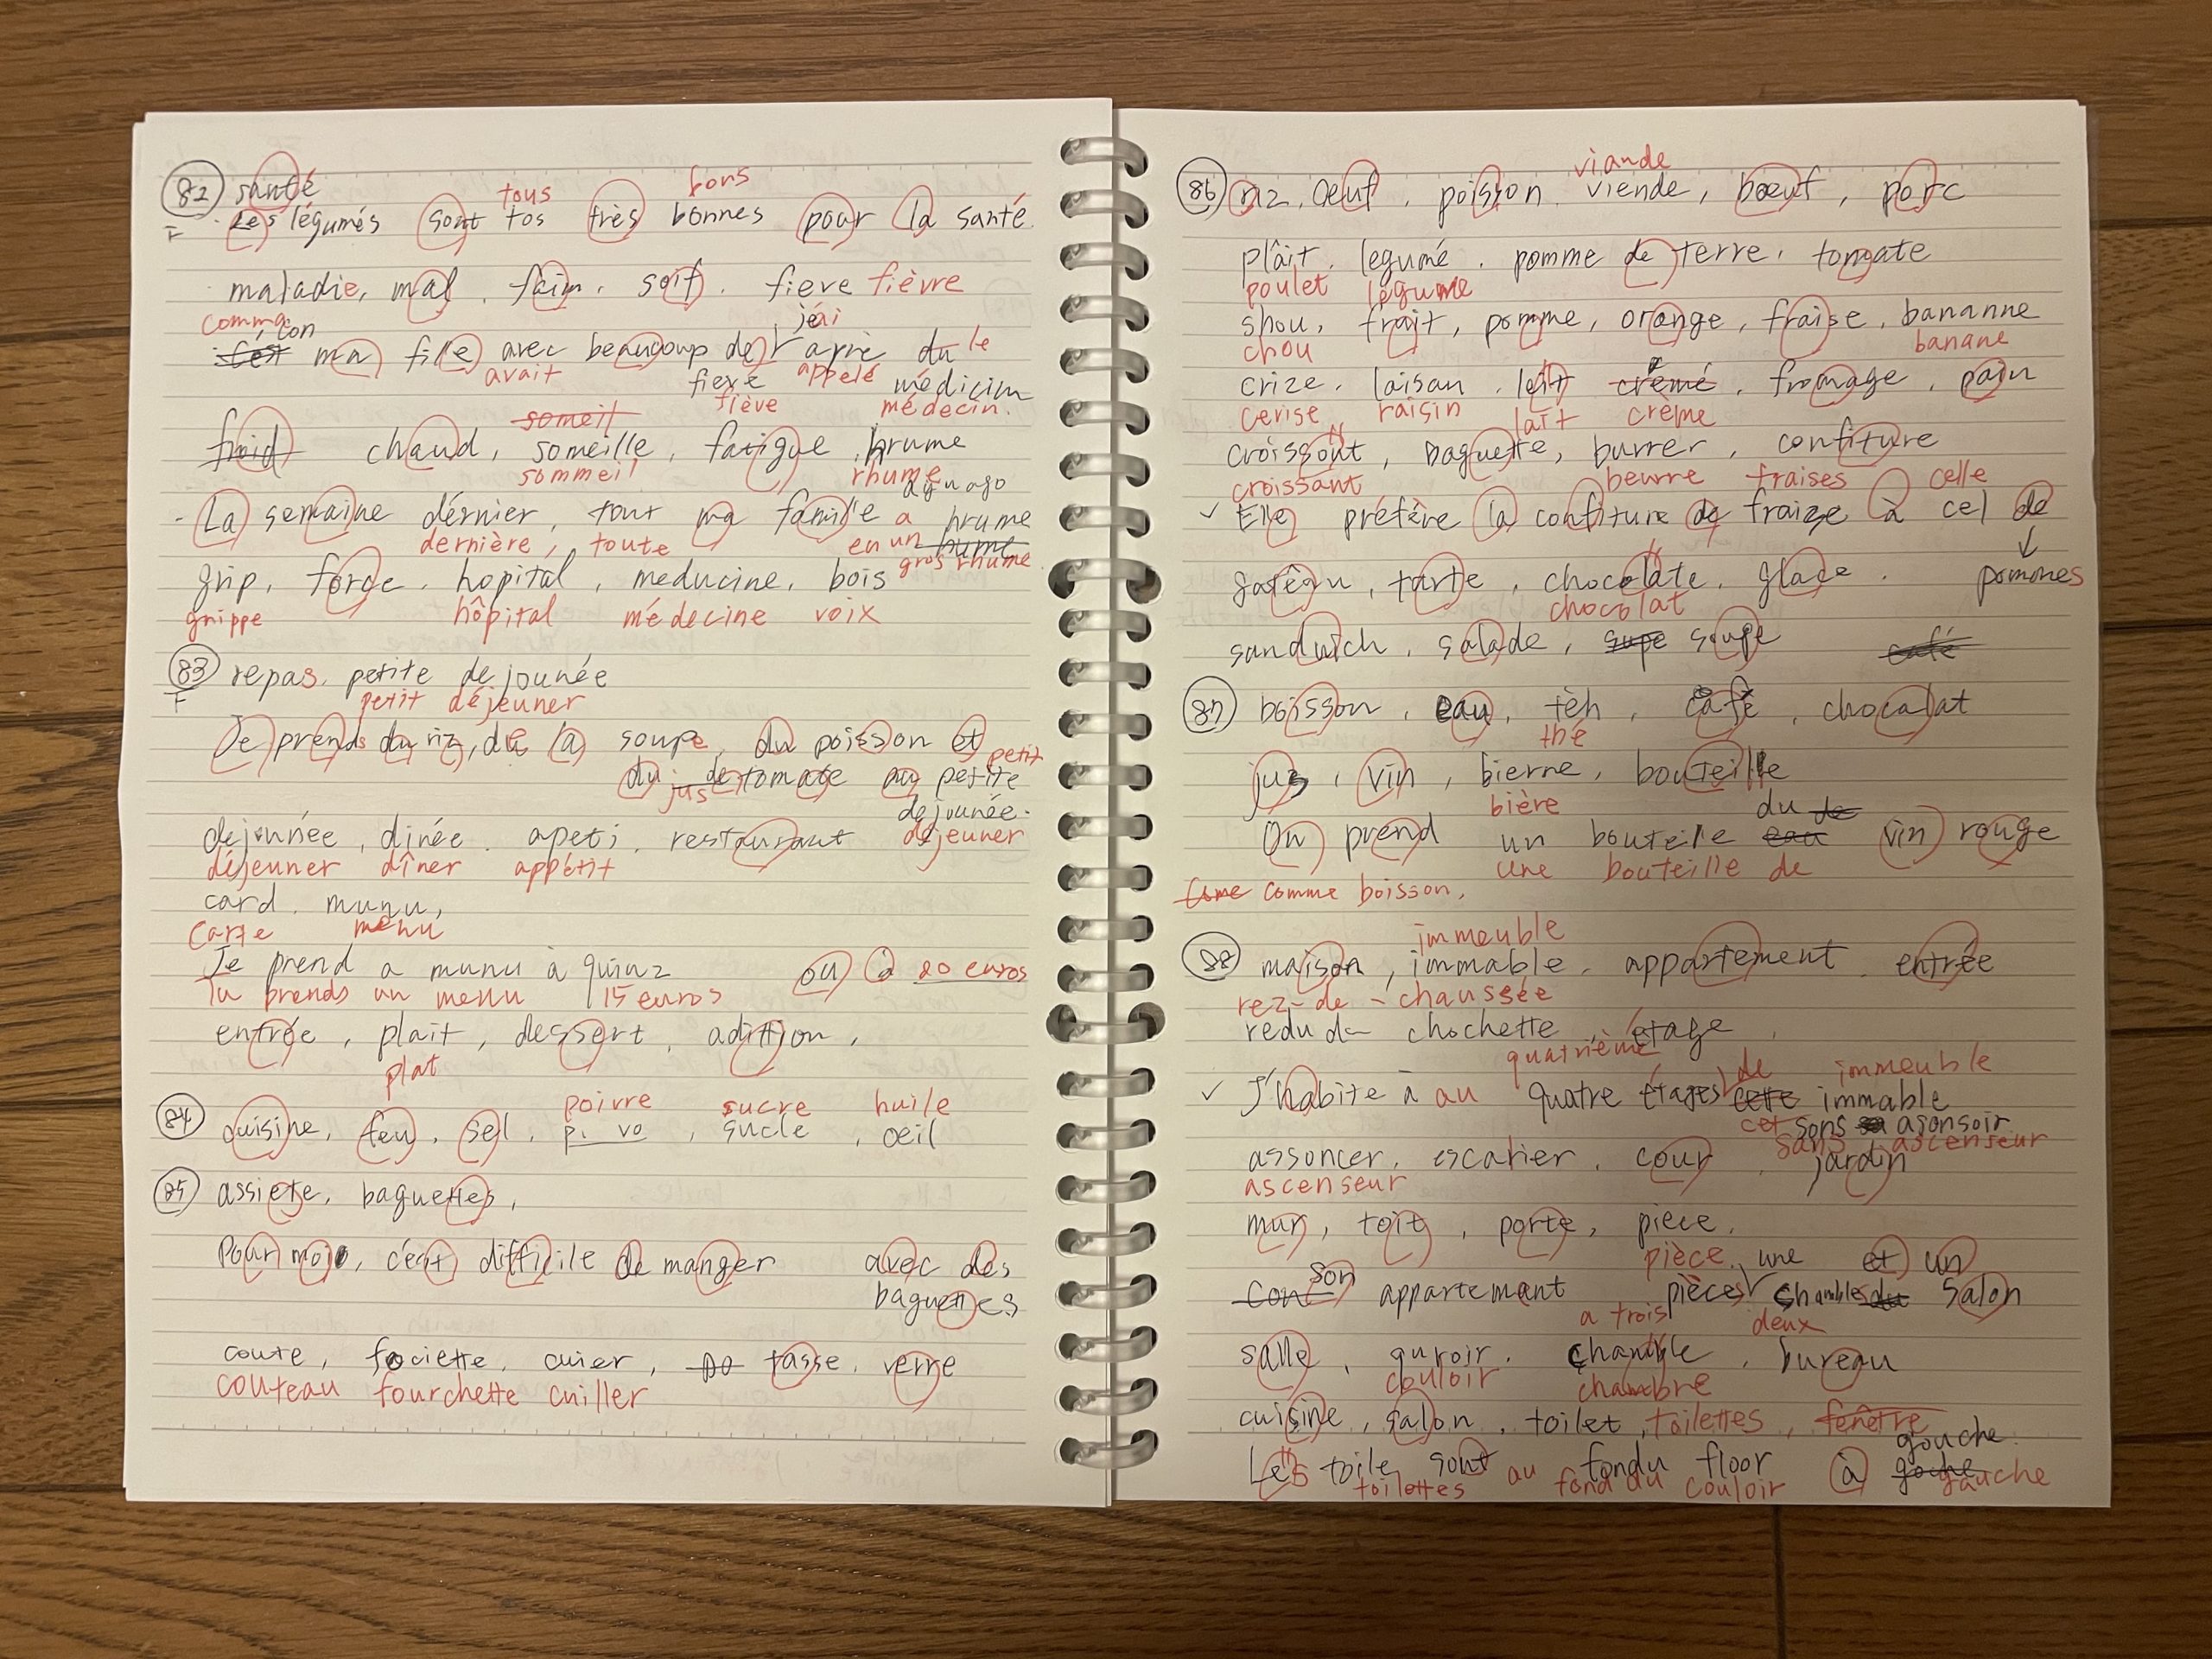 82 santé
tous bons
Les légumés sont tos très bonnes pour la santé.
maladie, mal, faim, soif, fieve fièvre
comme
ma fille avec beaucoup de j'ai apple du le
avait fieve appelé médicim
fiève médecin.
froid chaud, someille, fatigue, hrume
someil
sommeil rhume
La semaine dérnier, tout ma famille a hrume
dernière, toute en un hume
gros rhume
grip, force, hopital, meducine, bois
grippe hôpital médecine voix
83 repas, petite dejounée
petit déjeuner
Je prends du riz, de la soupe, du poisson et petit
du jus de tomate au petite
dejounée.
dejounée, dinée, apeti, restaurant déjeuner
déjeuner dîner appétit
card, munu,
carte menu
Je prend a munu à quinz ou à 20 euros
Tu prends un menu 15 euros
entrée, plait, dessert, adittion,
plat
poivre sucre huile
84 cuisine, feu, sel, pi vo, sucle, oeil
85 assiete, baguettes,
Pour moi, c'est difficile de manger avec des
baguettes
coute, fociette, cuier, po tasse, verre
couteau fourchette cuiller
viande
86 riz, oeuf, poisson, viende, bœuf, porc
plâit, legumé, pomme de terre, tomate
poulet légume
shou, frait, pomme, orange, fraise, bananne
chou banane
crize, laisan, leit crémé, fromage, pain
cerise raisin lait crème
croissont, baguette, burrer, confiture
croissant beurre fraises celle
Elle préfère la confiture de fraize à cel de
↓
gatêau, tarte, chocolate, glace. pommes
chocolat
sandwich, salade, supe soupe café
87 boisson, eau, tèh, café, chocalat
thé
jus, vin, bierne, bouteille
bière du de
On prend un bouteile eau vin rouge
une bouteille de
Come comme boisson,
immeuble
88 maison, immable, appartement, entrée
rez-de-chaussée
redu de chochette, étage,
quatrième de immeuble
J'habite à au quatre étages cette immable
cet sons sa asonsoir
sans ascenseur
assoncer, escalier, cour, jardin
ascenseur
mur, toit, porte, piece,
pièce, une et un
Con Son appartemant pièces chambles du salon
a trois deux
salle, quroir, chamble, bureau
couloir chambre
cuisine, salon, toilet, toilettes, fenêtre
gouche.
Les toile sont au fondu floor à goche
toilettes fond du couloir gauche